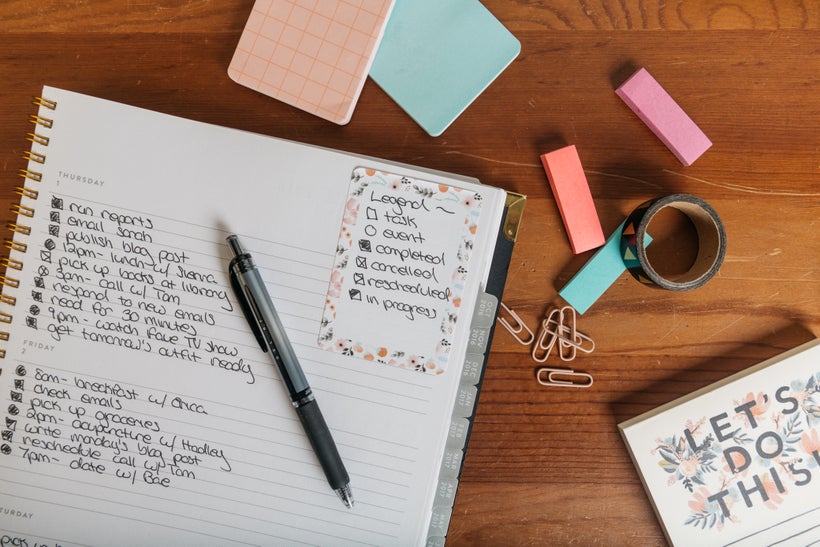 THURSDAY
1
run reports
email sarah
publish blog post
12pm- lunch w/ Sienna
pick up books at library
3pm- call w/ Tom
respond to new emails
read for 30 minutes
9pm- watch fave TV show
get tomorrow's outfit ready
FRIDAY
2
8am- breakfast w/ Erica
check emails
pick up groceries
2pm- acupuncture w/ Hadley
write monday's blog post
reschedule call w/ Tom
7pm- date w/ Bae
pick up
Legend ~
task
event
completed
cancelled
rescheduled
in progress
OCT
2016
NOV
2016
DEC
2016
JAN
2017
FEB
2017
MAR
2017
LET'S
DO
THIS